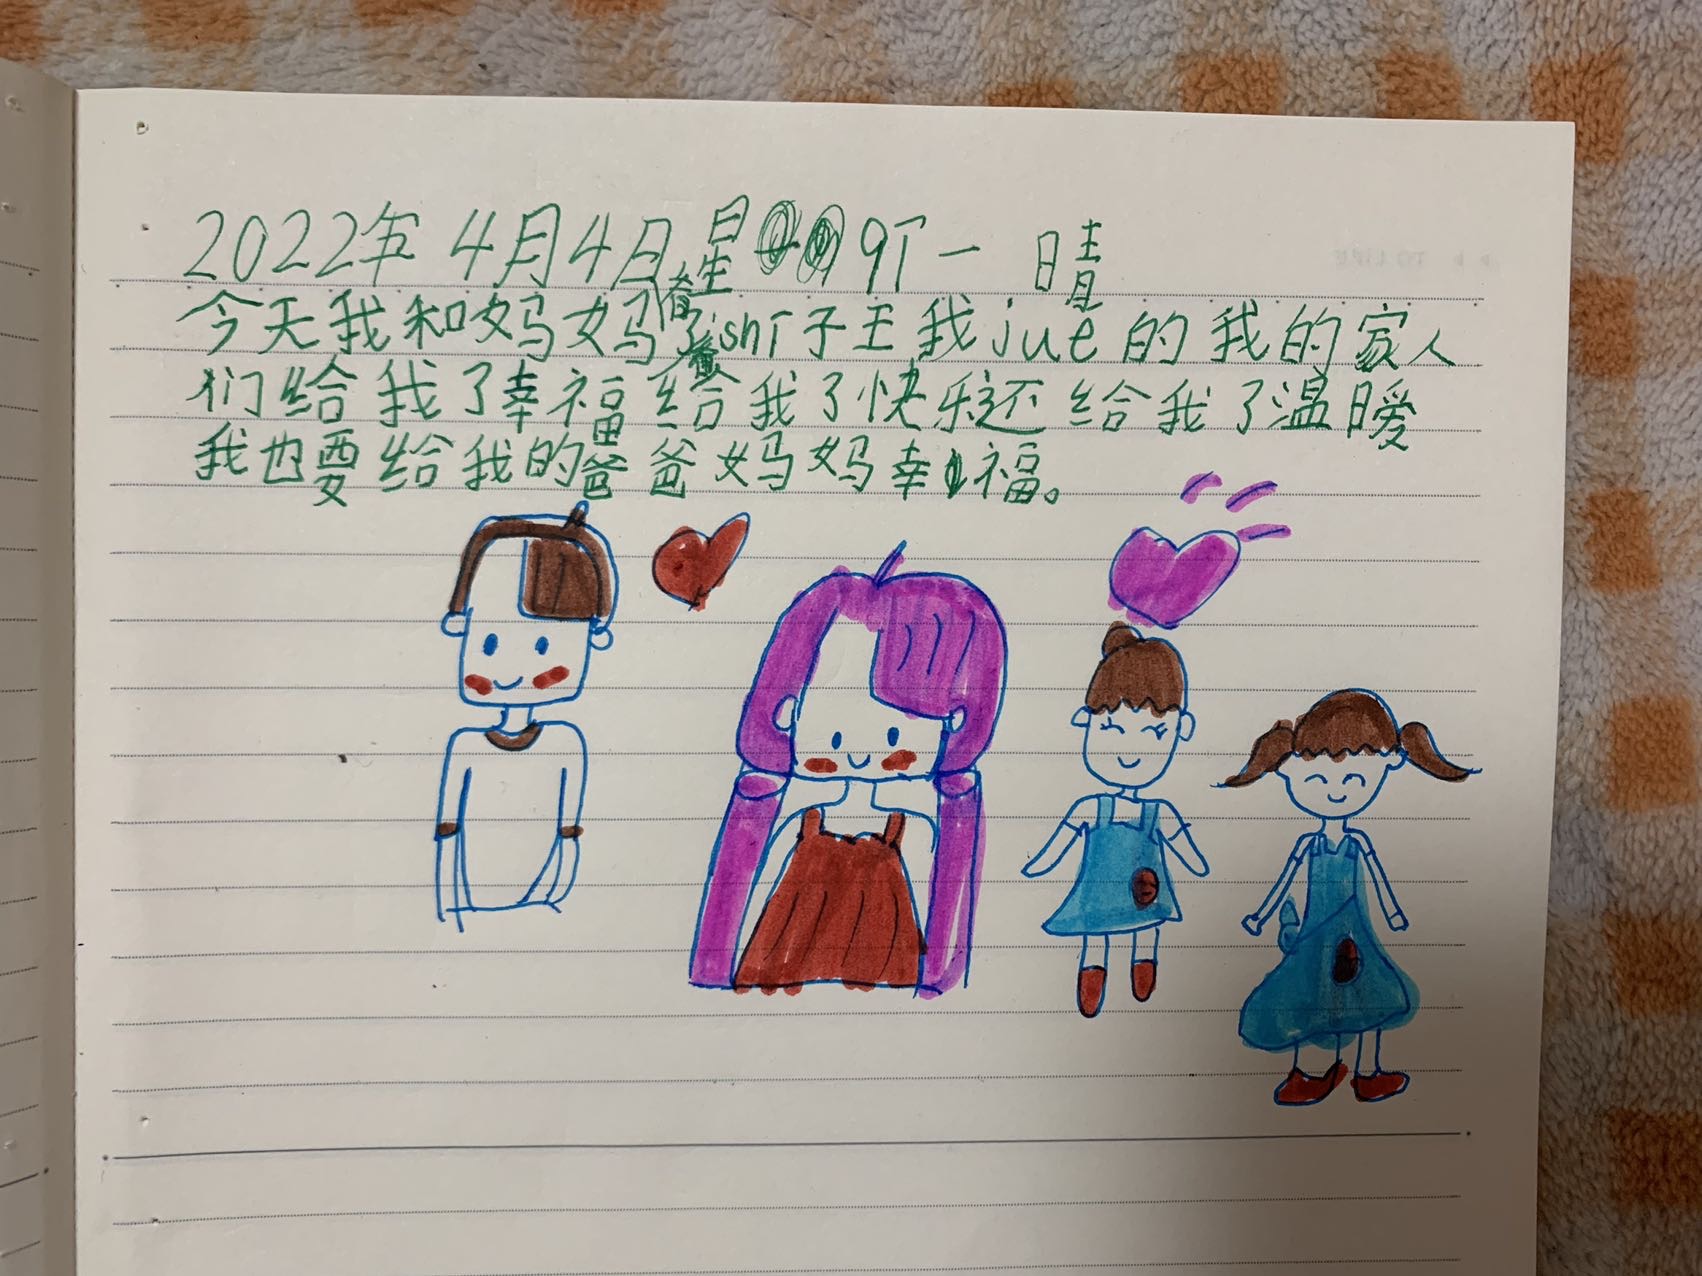 2022年 4月4日星 qT一 晴
今天我和妈妈看了shT子王我jue的我的家人
们给我了幸福给我了快乐还给我了温暖
我也要给我的爸爸妈妈幸福。